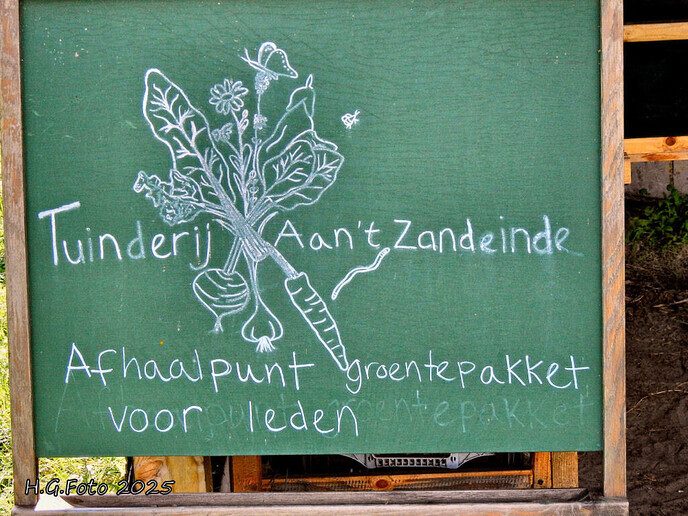 Tuinderij Aan't Zandeinde
Afhaalpunt groentepakket
voor leden
H.G.Foto 2025